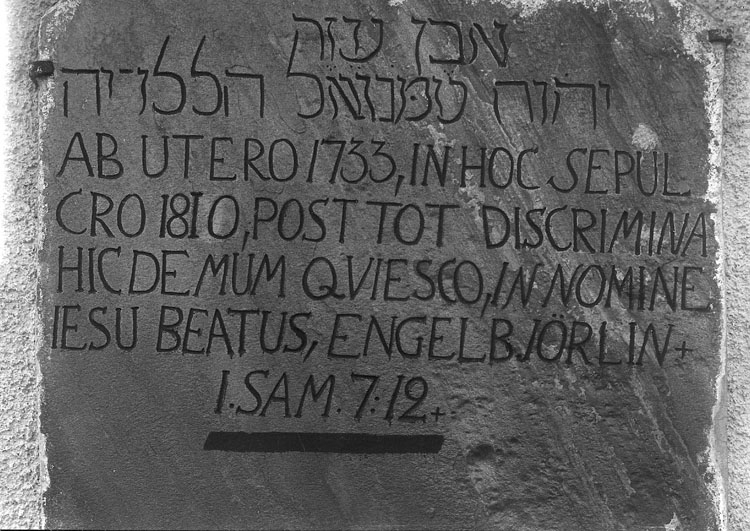 אבן עזה
יהוה עמנואל הללויה
AB UTERO 1733, IN HOC SEPUL
CRO 1810, POST TOT DISCRIMINA
HIC DEMUM QVIESCO, IN NOMINE
IESU BEATUS, ENGELB. JÖRLIN +
I. SAM. 7:12 +